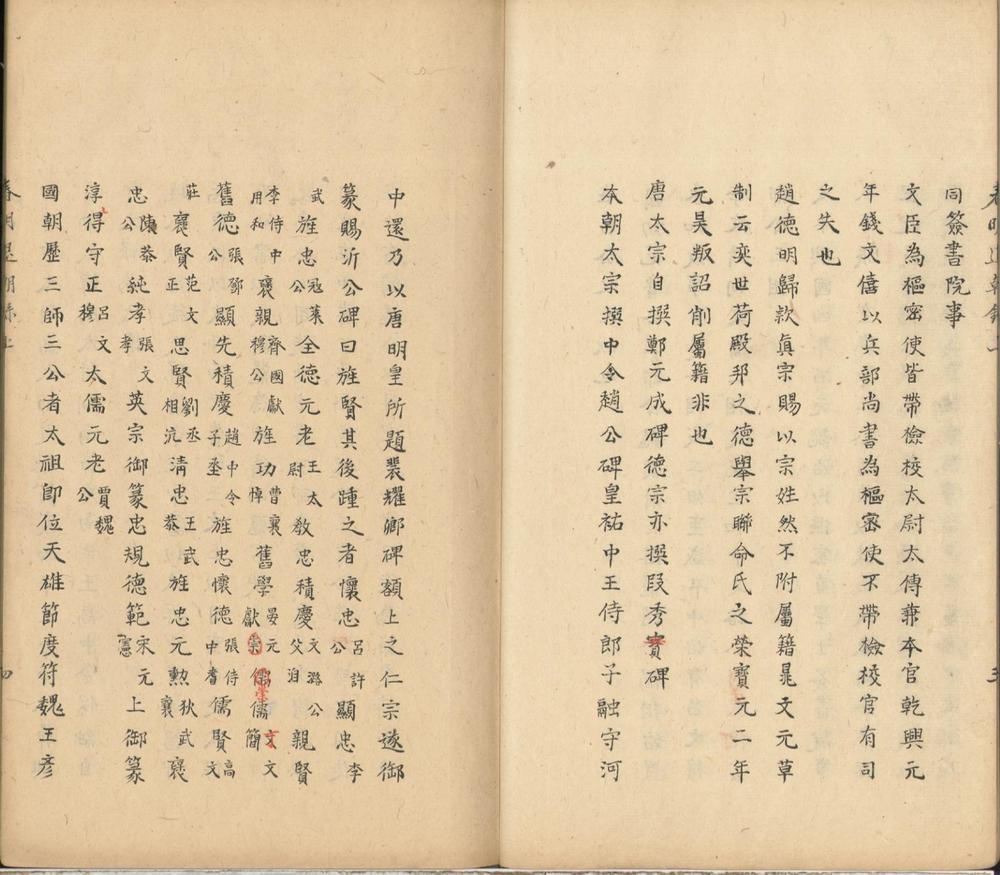 同簽書院事
文臣為樞密使皆帶檢校太尉太傅兼本官乾興元
年錢文僖以兵部尚書為樞密使不帶檢校官有司
之失也
趙德明歸款真宗賜以宗姓然不附屬籍晁文元草
制云奕世荷殿邦之德舉宗聯命氏之榮寶元二年
元昊叛詔削屬籍非也
唐太宗自撰鄭元成碑德宗亦撰段秀實碑
本朝太宗撰中令趙公碑皇祐中王侍郎子融守河
中還乃以唐明皇所題裴耀卿碑額上之仁宗遂御
篆賜沂公碑曰旌賢其後踵之者懷忠呂許公顯忠李
武旌忠寇萊公全德元老王太尉教忠積慶文潞公父洎親賢
李侍中用和襃親齊國獻穆公旌功曹襄悼舊學晏元獻崇儒文文簡高
舊德張鄧公顯先積慶趙中令子丞旌忠懷德張侍中耆儒賢文
莊襃賢范文正思賢劉丞相沆清忠王武恭旌忠元勲狄武襄襃
忠陳恭公純孝張文孝英宗御篆忠規德範宋元憲上御篆
淳得守正呂文穆太儒元老賈魏公
國朝歷三師三公者太祖即位天雄節度符魏王彥